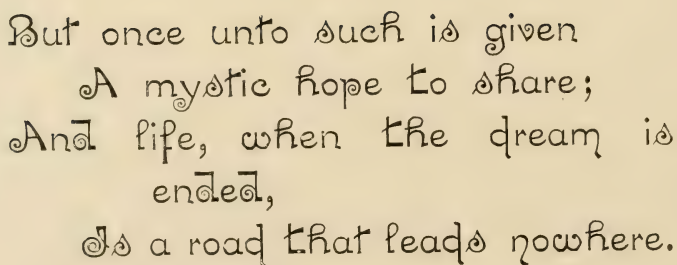 But once unto such is given
A mystic hope to share;
And life, when the dream is
ended,
Is a road that leads nowhere.